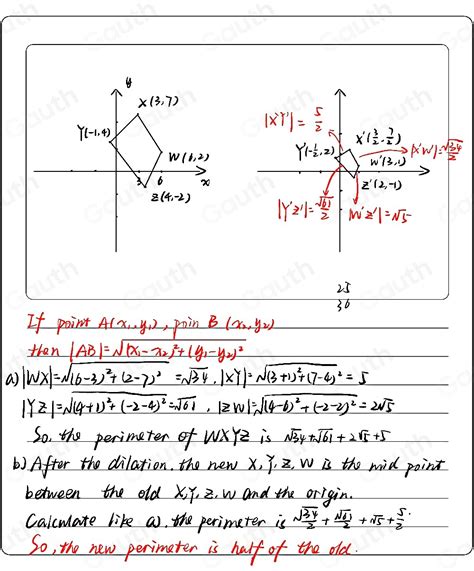 y
X(3,7)
Y(-1,4)
W(6,2)
3 6 x
Z(4,-2)
|XY'|= 5/2
X'(3/2, 7/2)
Y'(-1/2, 2)
W'(3,1)
|X'W'|=√34/2
Z'(2,-1)
|Y'Z'|=√61/2
|W'Z'|=√5
25
36
If point A(x₁,y₁), poin B (x₂,y₂)
then |AB|=√(x₁-x₂)²+(y₁-y₂)²
a) |WX|=√(6-3)²+(2-7)² =√34 , |XY|=√(3+1)²+(7-4)² = 5
|YZ|=√(4+1)²+(-2-4)² =√61 , |ZW|=√(4-6)²+(-2-2)² = 2√5
So, the perimeter of WXYZ is √34+√61+2√5+5
b) After the dilation, the new X, Y, Z, W is the mid point
between the old X, Y, Z, W and the origin.
Calculate like a), the perimeter is √34/2 + √61/2 + √5 + 5/2.
So, the new perimeter is half of the old.